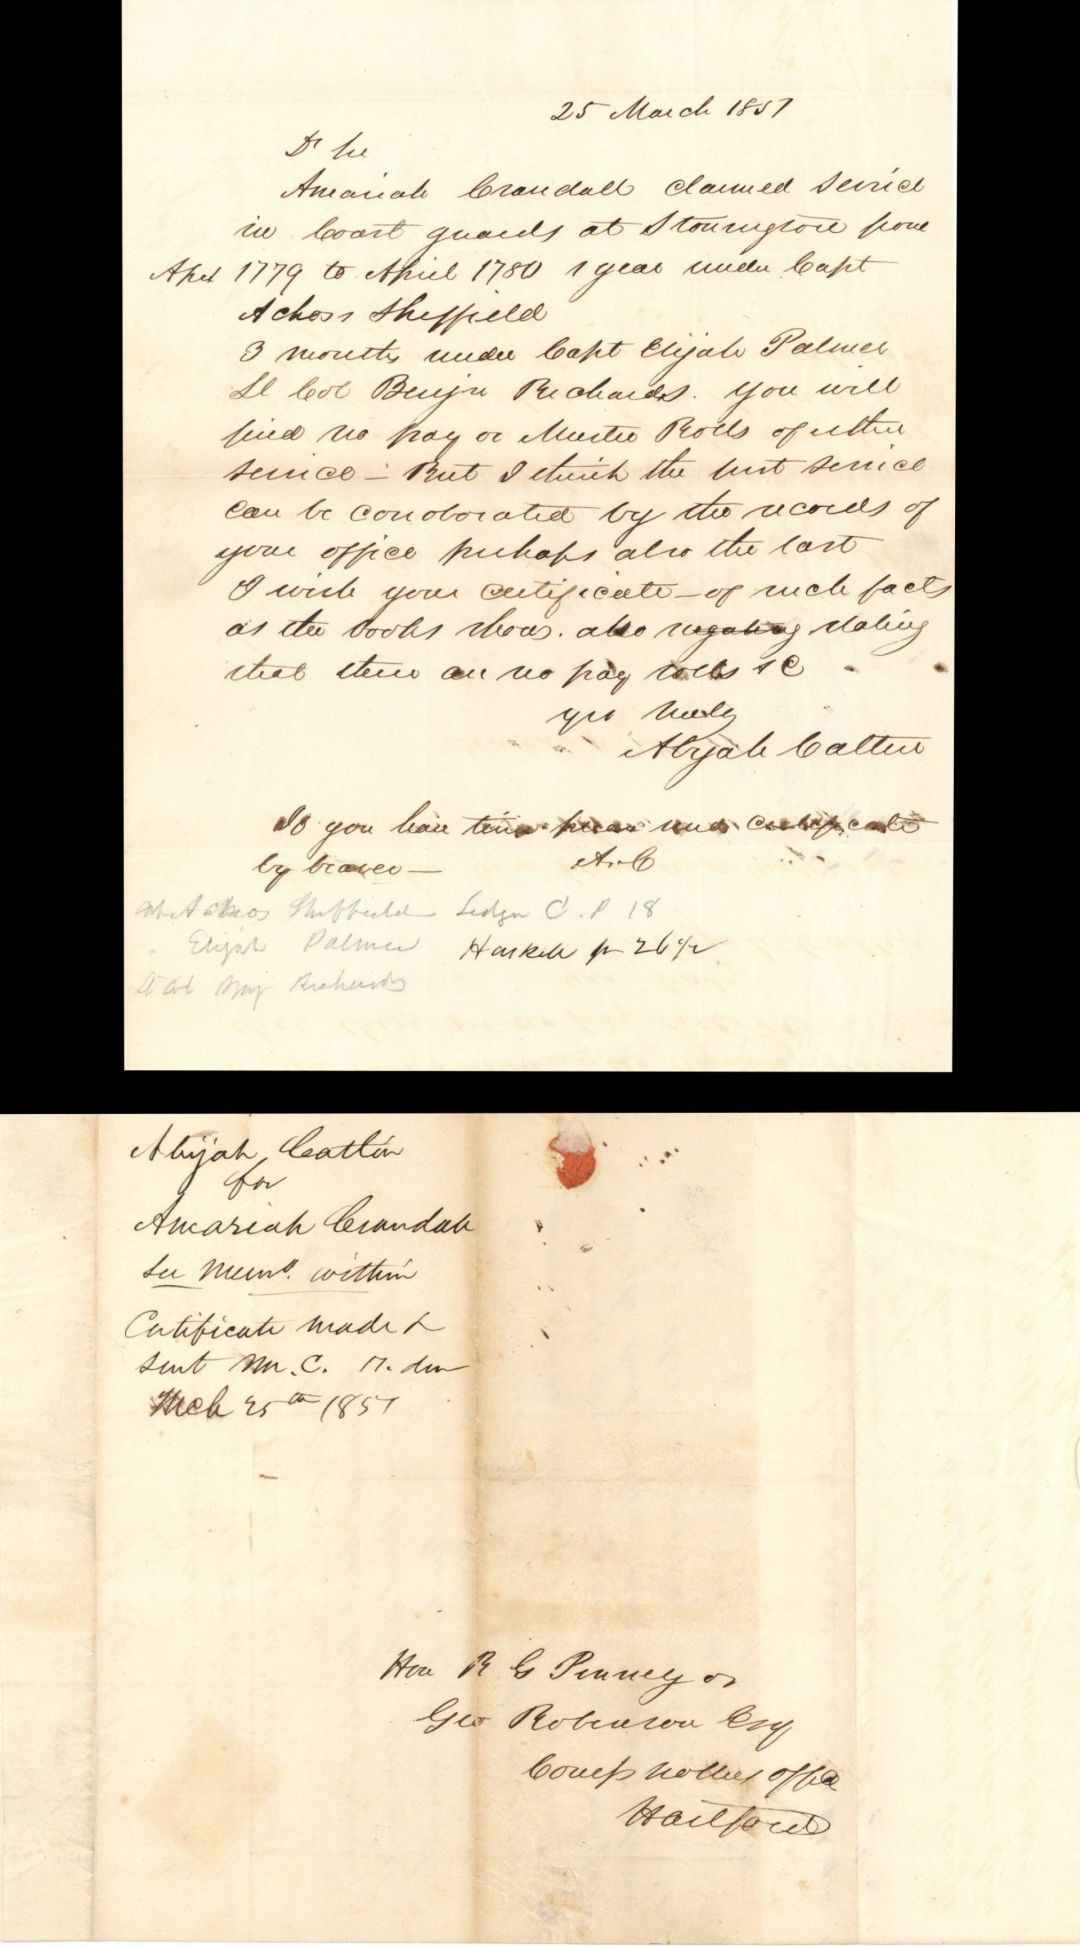 25 March 1851
Dr Sir
Amariah Crandall claimed service
in Coast guards at Stonington from
Apr 1779 to April 1780 1 year under Capt
Achors Sheffield
3 months under Capt Elijah Palmer
Lt Col Benjn Richards. You will
find no pay or Muster Rolls of either
service – But I think the first service
can be corroborated by the records of
your office perhaps also the last
I wish your certificate – of such facts
as the books shows. also negating stating
that there are no pay rolls &C
yrs truly
Abijah Catlin
If you have time please send certificate
by bearer –
A. C
Achors Sheffield Ledger C. P 18
" Elijah Palmer Haskell p 26 1/2
Lt Col Benj Richards
Abijah Catlin
for
Amariah Crandall
See Memo. within
Certificate made &
sent Mr. C.
Mch 25th 1851
Hon R G Pinney or
Geo Robinson Esq
Comptrollers office
Hartford